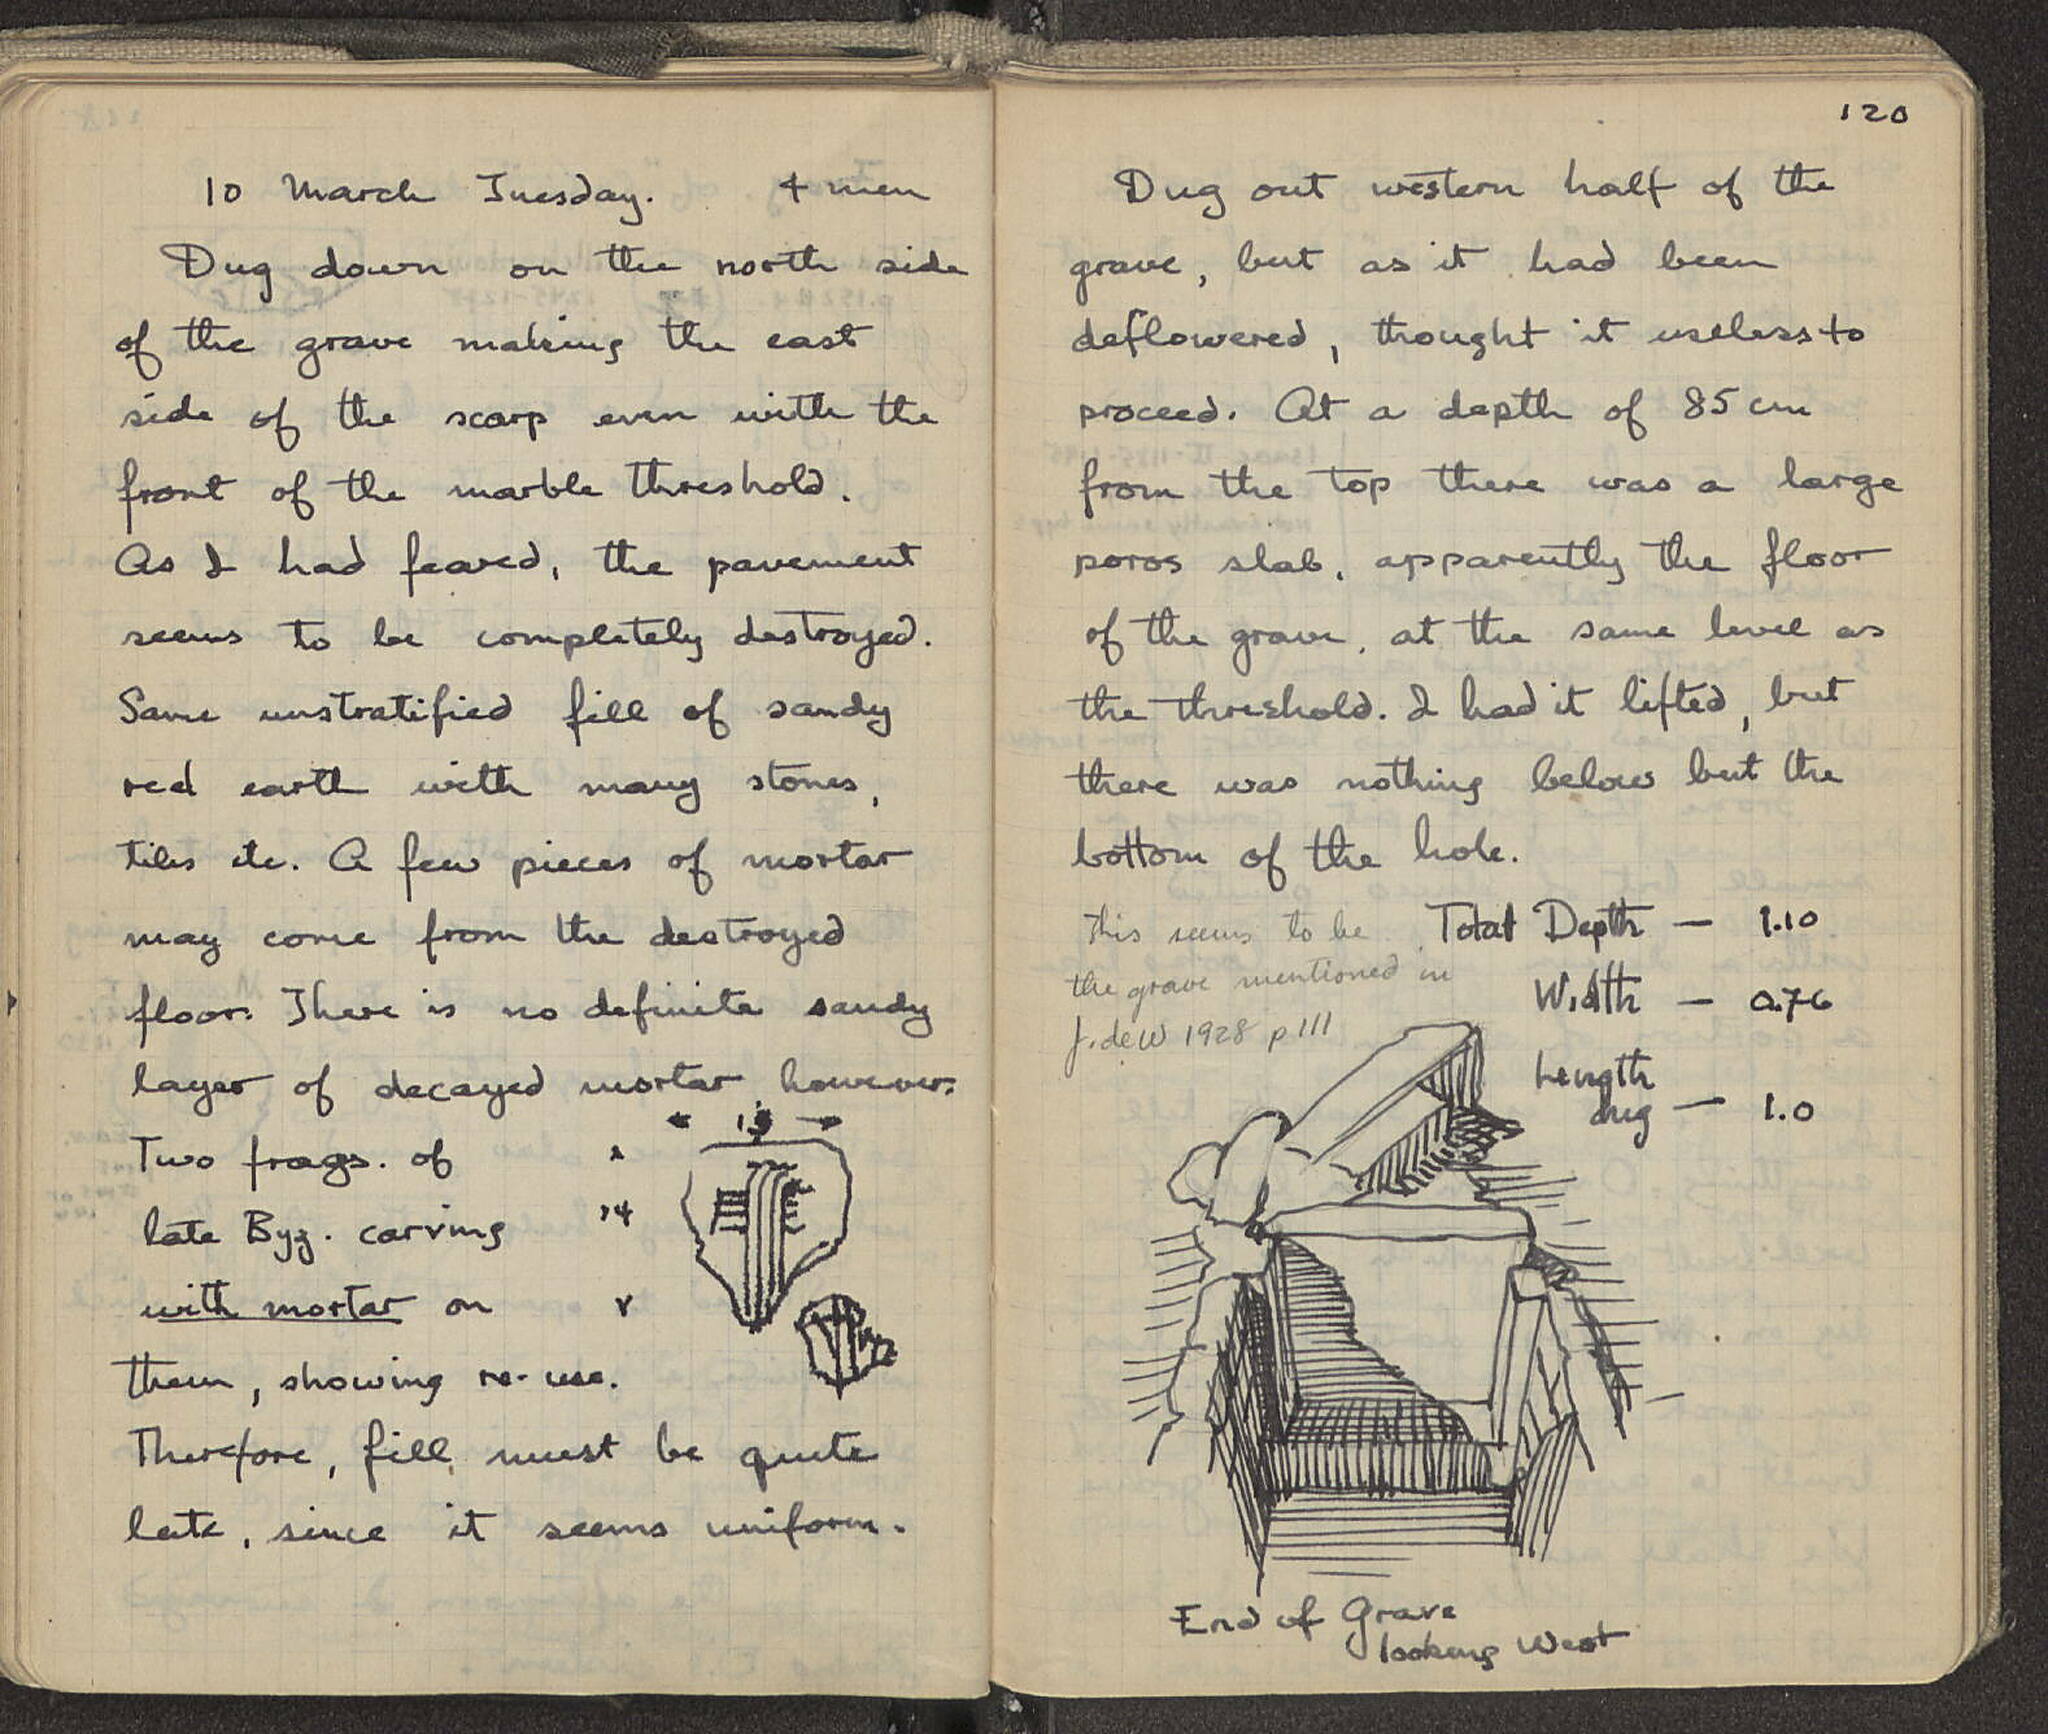 10 March Tuesday. 4 men
Dug down on the north side
of the grave making the east
side of the scarp even with the
front of the marble threshold.
As I had feared, the pavement
seems to be completely destroyed.
Same unstratified fill of sandy
red earth with many stones,
tiles etc. A few pieces of mortar
may come from the destroyed
floor. There is no definite sandy
layer of decayed mortar however.
Two frags. of
late Byz. carving
with mortar on
them, showing re-use.
Therefore, fill must be quite
late, since it seems uniform.
14
120
Dug out western half of the
grave, but as it had been
deflowered, thought it useless to
proceed. At a depth of 85 cm
from the top there was a large
poros slab, apparently the floor
of the grave, at the same level as
the threshold. I had it lifted, but
there was nothing below but the
bottom of the hole.
This seems to be
the grave mentioned in
J. deW 1928 p 111
Total Depth — 1.10
Width — 0.76
Length
dug — 1.0
End of Grave
looking West